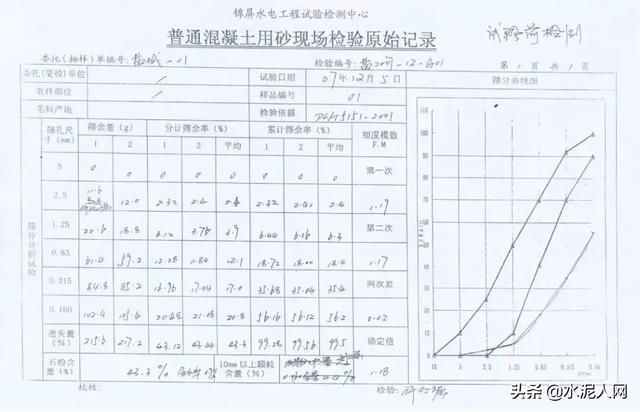 锦屏水电工程试验检测中心
普通混凝土用砂现场检验原始记录
委托(抽样)单编号: -01 检验编号: -12-G01 第 1 页 共 1 页
委托(受检)单位 / 试验日期 07年12月5日 筛分曲线图
取样部位 / 样品编号 01
毛料产地 检验依据 DL/T5151-2001
筛孔尺寸(mm) 筛余量(g) 分计筛余率(%) 累计筛余率(%) 细度模数F.M
1 2 1 2 平均 1 2 平均
筛分分析试验
5 0 0 0 0 0 0 0 0 第一次
2.5 11.6 12.0 2.32 2.4 2.4 2.32 2.40 2.4 1.19
1.25 20.6 18.8 4.12 3.76 3.9 6.44 6.16 6.3 第二次
0.63 61.4 59.2 12.28 11.84 12.1 18.72 18.00 18.4 1.17
0.315 84.8 85.2 16.96 17.04 17.0 35.68 35.04 35.4 两次差
0.160 102.4 105.4 20.48 21.08 20.8 56.16 56.12 56.2 0.02
遗失量(%) 215.6 217.2 43.12 43.44 43.3 99.28 99.56 99.5 确定值
石粉含量(%) 43.3 % 10mm以上颗粒含量(%) 1.18
校核: 检验:
110
100
90
80
70
60
50
40
30
20
10
0
10 5 2.5 1.25 0.63 0.315 0.16
头条 @水泥人网